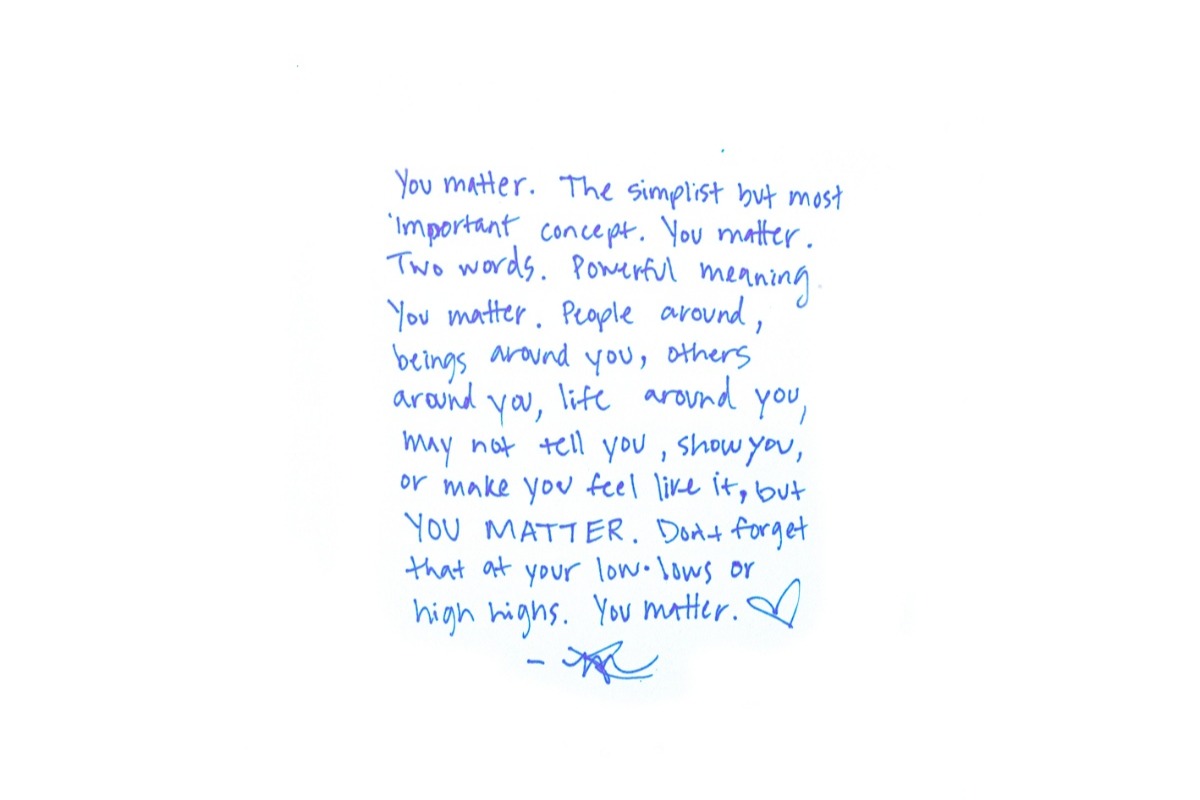 You matter. The simplist but most
important concept. You matter.
Two words. Powerful meaning
You matter. People around,
beings around you, others
around you, life around you,
may not tell you, show you,
or make you feel like it, but
YOU MATTER. Don't forget
that at your low-lows or
high highs. You matter.